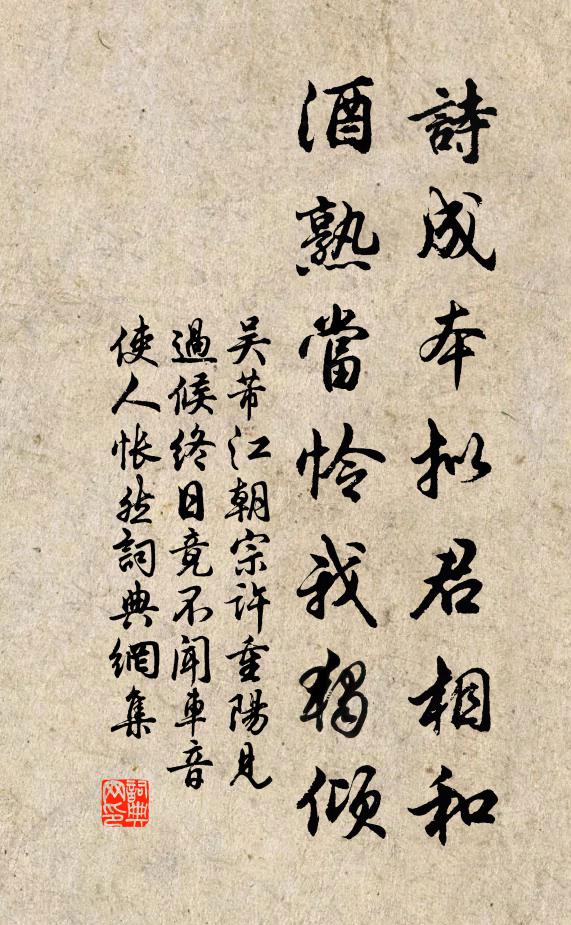 詩成本拟君相和
酒熟當怜我獨傾
吴芾江朝宗許重陽見
過候终日竟不闻車音
使人怅然詞典網集
詞典网印